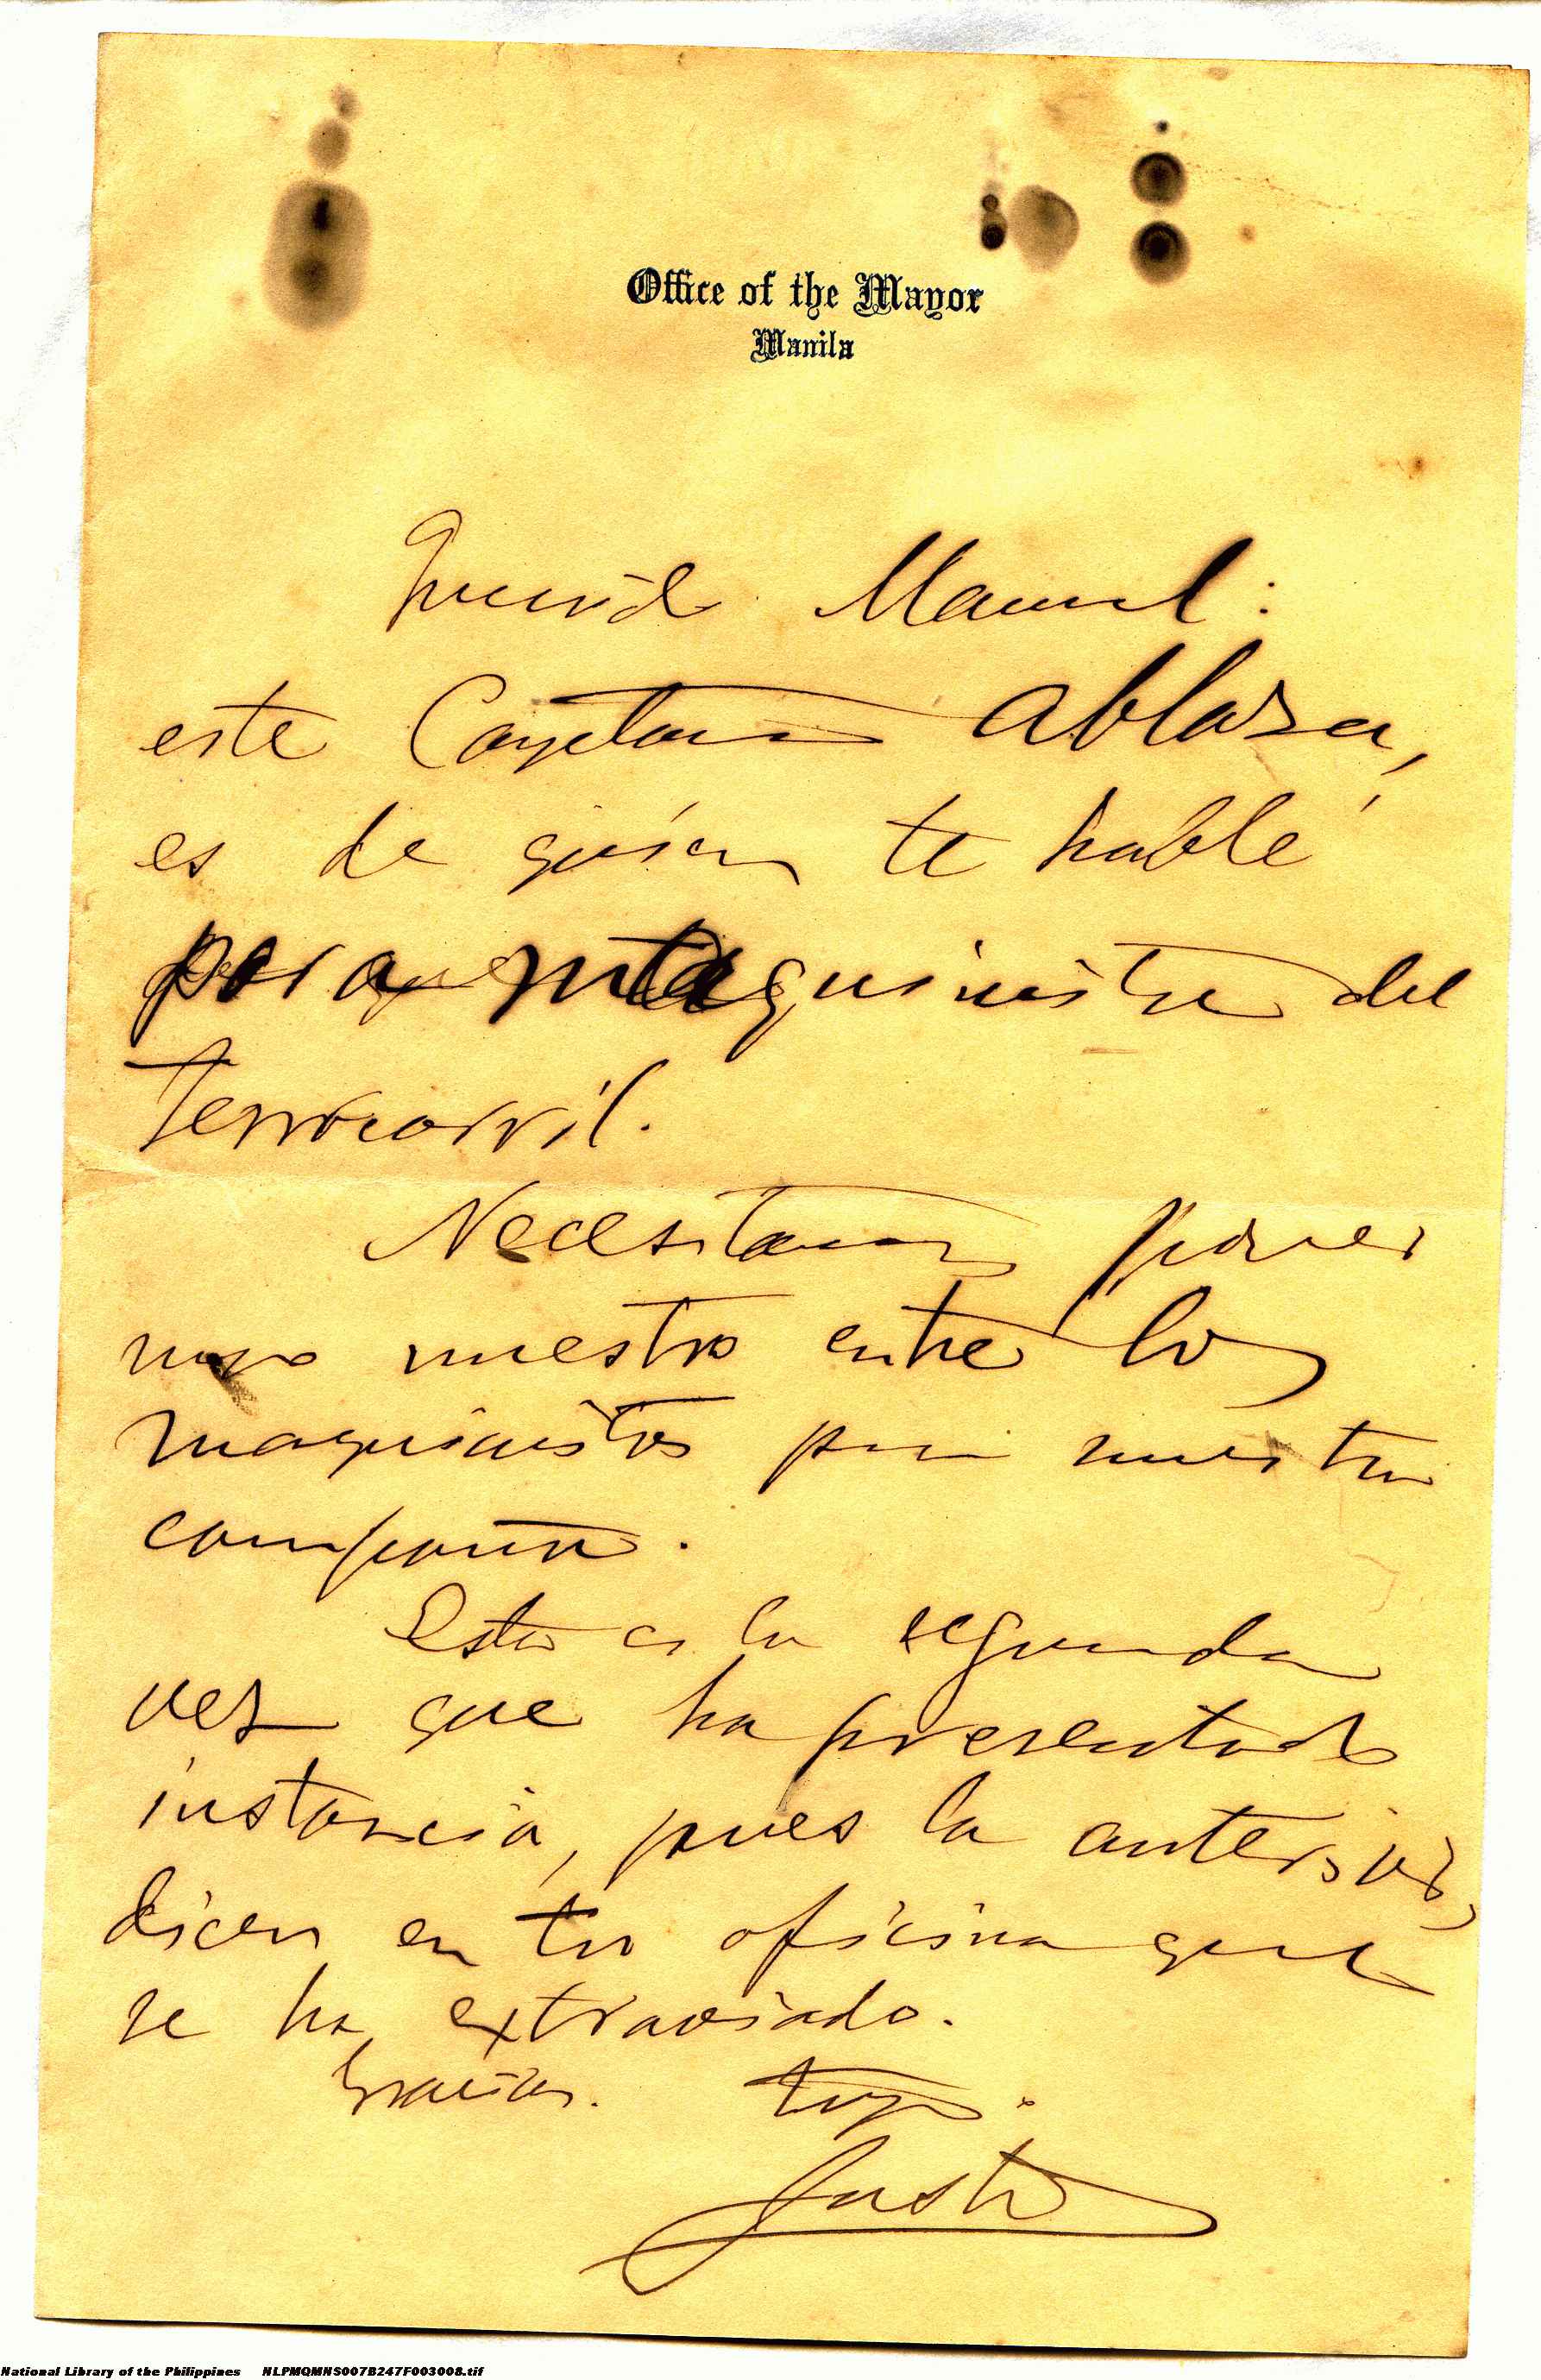 Office of the Mayor
Manila
Querido Manuel:
este Cayetano Ablaza,
es de quién te hablé
para maquinista del
ferrocarril.
Necesitamos poner
uno nuestro entre los
maquinistas para nuestra
campaña.
Esta es la segunda
vez que ha presentado
instancia, pues la anterior,
dicen en tu oficina que
se ha extraviado.
Gracias. tuyo.
Justo
National Library of the Philippines NLPMQMNS007B247F003008.tif